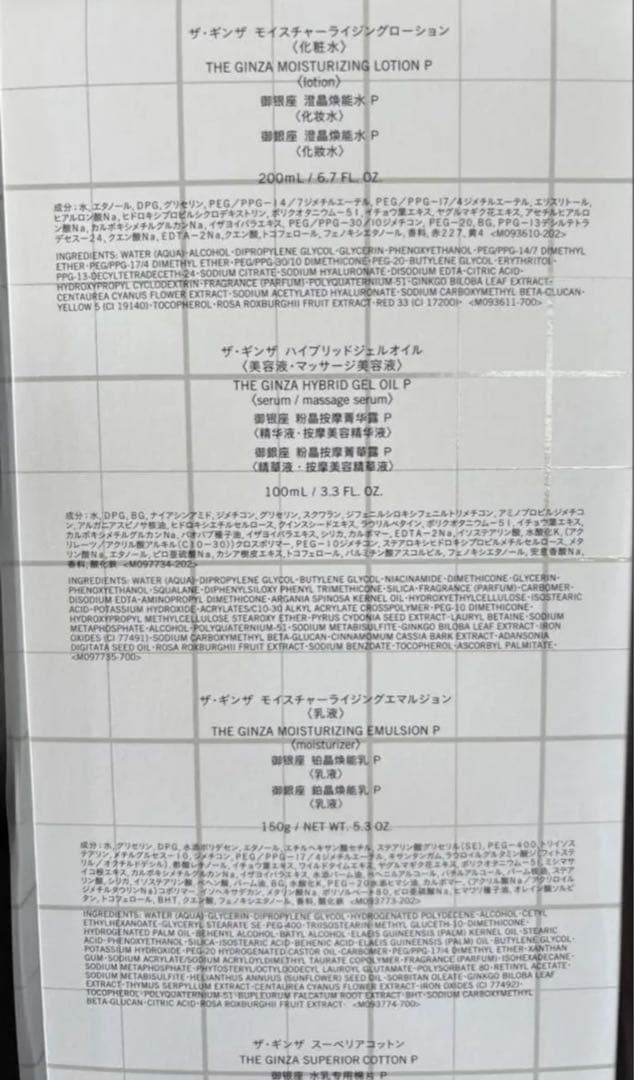 ザ・ギンザ モイスチャーライジングローション
〈化粧水〉
THE GINZA MOISTURIZING LOTION P
〈lotion〉
御银座 澄晶焕能水 P
〈化妆水〉
御銀座 澄晶煥能水 P
〈化妝水〉
200mL / 6.7 FL. OZ.
成分:水,エタノール,DPG,グリセリン,PEG/PPG-14/7ジメチルエーテル,PEG/PPG-17/4ジメチルエーテル,エリスリトール,
ヒアルロン酸Na,ヒドロキシプロピルシクロデキストリン,ポリクオタニウム-51,イチョウ葉エキス,ヤグルマギク花エキス,アセチルヒアルロ
ン酸Na,カルボキシメチルグルカンNa,イザヨイバラエキス,PEG/PPG-30/10ジメチコン,PEG-20,BG,PPG-13デシルテトラ
デセス-24,クエン酸Na,EDTA-2Na,クエン酸,トコフェロール,フェノキシエタノール,香料,赤227,黄4 <M093610-202>
INGREDIENTS: WATER (AQUA)·ALCOHOL·DIPROPYLENE GLYCOL·GLYCERIN·PHENOXYETHANOL·PEG/PPG-14/7 DIMETHYL
ETHER·PEG/PPG-17/4 DIMETHYL ETHER·PEG/PPG-30/10 DIMETHICONE·PEG-20·BUTYLENE GLYCOL·ERYTHRITOL·
PPG-13-DECYLTETRADECETH-24·SODIUM CITRATE·SODIUM HYALURONATE·DISODIUM EDTA·CITRIC ACID·
HYDROXYPROPYL CYCLODEXTRIN·FRAGRANCE (PARFUM)·POLYQUATERNIUM-51·GINKGO BILOBA LEAF EXTRACT·
CENTAUREA CYANUS FLOWER EXTRACT·SODIUM ACETYLATED HYALURONATE·SODIUM CARBOXYMETHYL BETA-GLUCAN·
YELLOW 5 (CI 19140)·TOCOPHEROL·ROSA ROXBURGHII FRUIT EXTRACT·RED 33 (CI 17200)· <M093611-700>
ザ・ギンザ ハイブリッドジェルオイル
〈美容液・マッサージ美容液〉
THE GINZA HYBRID GEL OIL P
〈serum / massage serum〉
御银座 粉晶按摩菁华露 P
〈精华液・按摩美容精华液〉
御銀座 粉晶按摩菁華露 P
〈精華液・按摩美容精華液〉
100mL / 3.3 FL. OZ.
成分:水,DPG,BG,ナイアシンアミド,ジメチコン,グリセリン,スクワラン,ジフェニルシロキシフェニルトリメチコン,アミノプロピルジメチコ
ン,アルガニアスピノサ核油,ヒドロキシエチルセルロース,クインスシードエキス,ラウリルベタイン,ポリクオタニウム-51,イチョウ葉エキス,
カルボキシメチルグルカンNa,バオバブ種子油,イザヨイバラエキス,シリカ,カルボマー,EDTA-2Na,イソステアリン酸,水酸化K,(アク
リレーツ/アクリル酸アルキル(C10-30))クロスポリマー,PEG-10ジメチコン,ステアロキシヒドロキシプロピルメチルセルロース,メタ
リン酸Na,エタノール,ピロ亜硫酸Na,カシア樹皮エキス,トコフェロール,パルミチン酸アスコルビル,フェノキシエタノール,安息香酸Na,
香料,酸化鉄 <M097734-202>
INGREDIENTS: WATER (AQUA)·DIPROPYLENE GLYCOL·BUTYLENE GLYCOL·NIACINAMIDE·DIMETHICONE·GLYCERIN·
PHENOXYETHANOL·SQUALANE·DIPHENYLSILOXY PHENYL TRIMETHICONE·SILICA·FRAGRANCE (PARFUM)·CARBOMER·
DISODIUM EDTA·AMINOPROPYL DIMETHICONE·ARGANIA SPINOSA KERNEL OIL·HYDROXYETHYLCELLULOSE·ISOSTEARIC
ACID·POTASSIUM HYDROXIDE·ACRYLATES/C10-30 ALKYL ACRYLATE CROSSPOLYMER·PEG-10 DIMETHICONE·
HYDROXYPROPYL METHYLCELLULOSE STEAROXY ETHER·PYRUS CYDONIA SEED EXTRACT·LAURYL BETAINE·SODIUM
METAPHOSPHATE·ALCOHOL·POLYQUATERNIUM-51·SODIUM METABISULFITE·GINKGO BILOBA LEAF EXTRACT·IRON
OXIDES (CI 77491)·SODIUM CARBOXYMETHYL BETA-GLUCAN·CINNAMOMUM CASSIA BARK EXTRACT·ADANSONIA
DIGITATA SEED OIL·ROSA ROXBURGHII FRUIT EXTRACT·SODIUM BENZOATE·TOCOPHEROL·ASCORBYL PALMITATE·
<M097735-700>
ザ・ギンザ モイスチャーライジングエマルジョン
〈乳液〉
THE GINZA MOISTURIZING EMULSION P
〈moisturizer〉
御银座 铂晶焕能乳 P
〈乳液〉
御銀座 鉑晶煥能乳 P
〈乳液〉
150g / NET WT. 5.3 OZ.
成分:水,グリセリン,DPG,水添ポリデセン,エタノール,エチルヘキサン酸セチル,ステアリン酸グリセリル(SE),PEG-400,トリイソス
テアリン酸メチルグルセス-10,ジメチコン,PEG/PPG-17/4ジメチルエーテル,キサンタンガム,ラウロイルグルタミン酸ジ(フィトステ
リル/オクチルドデシル),酢酸レチノール,イチョウ葉エキス,ワイルドタイムエキス,ヤグルマギク花エキス,ポリクオタニウム-51,ミシマサ
イコ根エキス,カルボキシメチルグルカンNa,イザヨイバラエキス,水添パーム油,ベヘニルアルコール,バチルアルコール,パーム核油,ステア
リン酸,シリカ,イソステアリン酸,ベヘン酸,パーム油,BG,水酸化K,PEG-20水添ヒマシ油,カルボマー,(アクリル酸Na/アクリロイル
ジメチルタウリンNa)コポリマー,イソヘキサデカン,メタリン酸Na,ポリソルベート80,ピロ亜硫酸Na,ヒマワリ種子油,オレイン酸ソルビ
タン,トコフェロール,BHT,クエン酸,フェノキシエタノール,香料,酸化鉄 <M093773-202>
INGREDIENTS: WATER (AQUA)·GLYCERIN·DIPROPYLENE GLYCOL·HYDROGENATED POLYDECENE·ALCOHOL·CETYL
ETHYLHEXANOATE·GLYCERYL STEARATE SE·PEG-400·TRIISOSTEARIN·METHYL GLUCETH-10·DIMETHICONE·
HYDROGENATED PALM OIL·BEHENYL ALCOHOL·BATYL ALCOHOL·ELAEIS GUINEENSIS (PALM) KERNEL OIL·STEARIC
ACID·PHENOXYETHANOL·SILICA·ISOSTEARIC ACID·BEHENIC ACID·ELAEIS GUINEENSIS (PALM) OIL·BUTYLENE GLYCOL·
POTASSIUM HYDROXIDE·PEG-20 HYDROGENATED CASTOR OIL·CARBOMER·PEG/PPG-17/4 DIMETHYL ETHER·XANTHAN
GUM·SODIUM ACRYLATE/SODIUM ACRYLOYLDIMETHYL TAURATE COPOLYMER·FRAGRANCE (PARFUM)·ISOHEXADECANE·
SODIUM METAPHOSPHATE·PHYTOSTERYL/OCTYLDODECYL LAUROYL GLUTAMATE·POLYSORBATE 80·RETINYL ACETATE·
SODIUM METABISULFITE·HELIANTHUS ANNUUS (SUNFLOWER) SEED OIL·SORBITAN OLEATE·GINKGO BILOBA LEAF
EXTRACT·THYMUS SERPYLLUM EXTRACT·CENTAUREA CYANUS FLOWER EXTRACT·IRON OXIDES (CI 77492)·
TOCOPHEROL·POLYQUATERNIUM-51·BUPLEURUM FALCATUM ROOT EXTRACT·BHT·SODIUM CARBOXYMETHYL
BETA-GLUCAN·CITRIC ACID·ROSA ROXBURGHII FRUIT EXTRACT· <M093774-700>
ザ・ギンザ スーペリアコットン
THE GINZA SUPERIOR COTTON P
御银座 水乳专用棉片 P